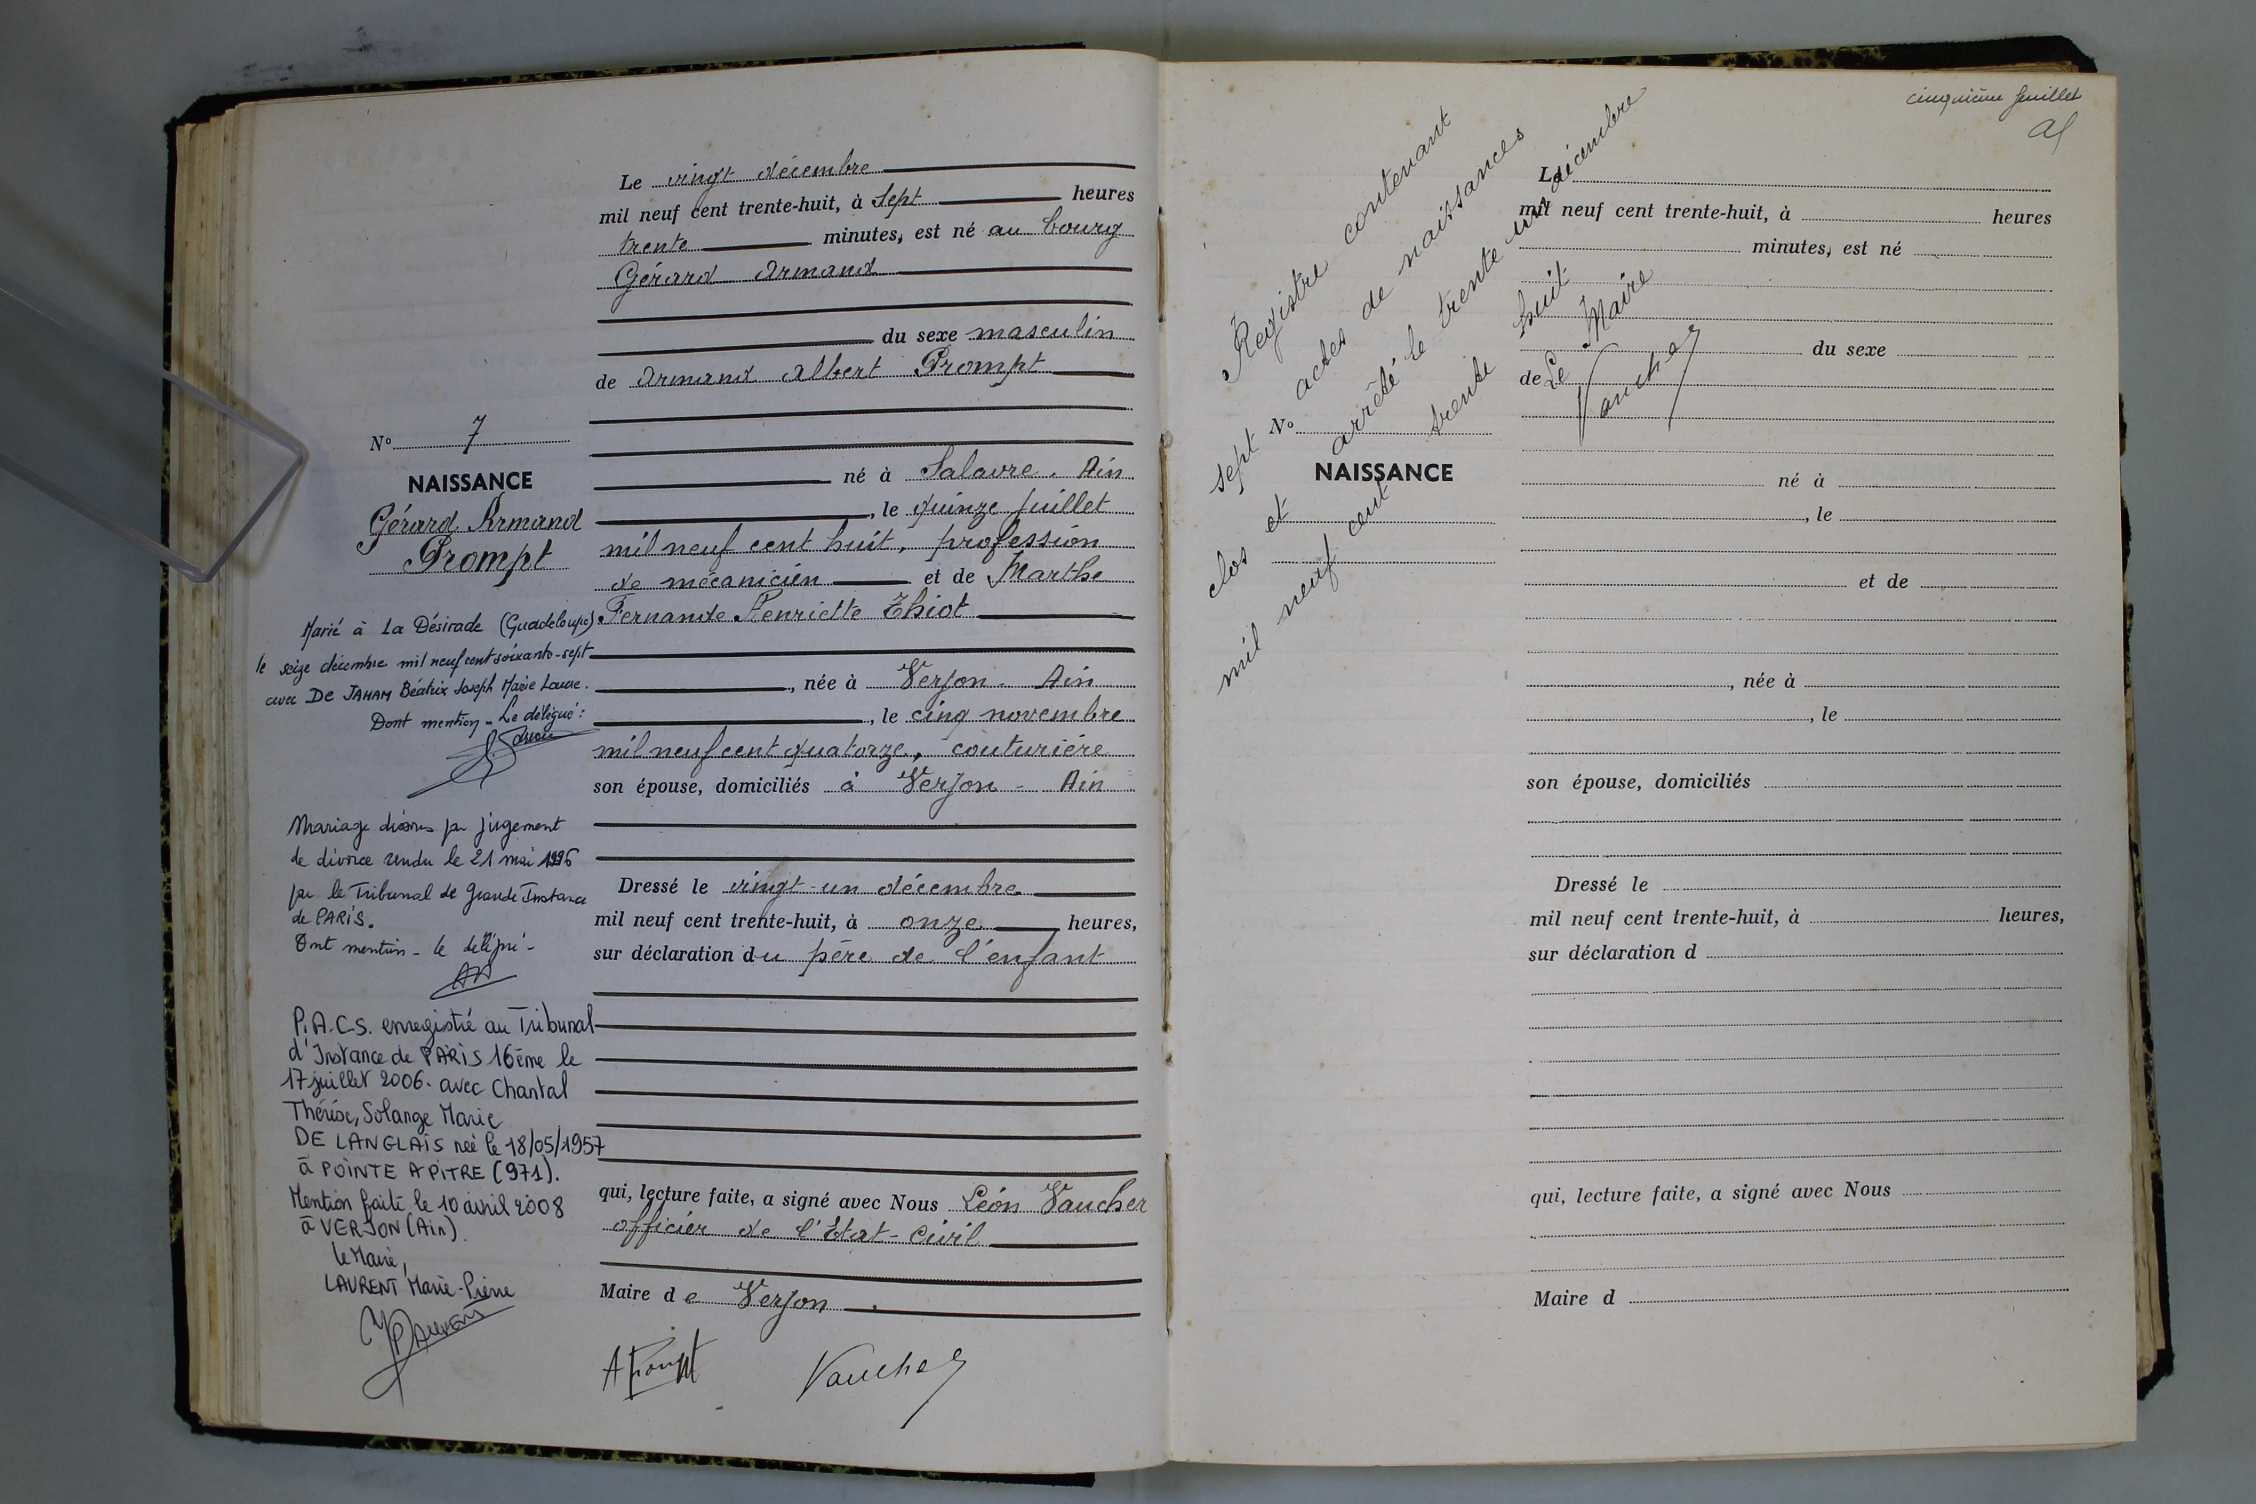 Le vingt décembre
mil neuf cent trente-huit, à sept heures
trente minutes, est né au bourg
Gérard Armand
du sexe masculin
de Armand Albert Prompt
né à Salavre. Ain
, le quinze juillet
mil neuf cent huit, profession
de mécanicien et de Marthe
Fernande Henriette Thiot
, née à Verjon - Ain
, le cinq novembre
mil neuf cent quatorze, couturière
son épouse, domiciliés à Verjon - Ain
Dressé le vingt-un décembre
mil neuf cent trente-huit, à onze heures,
sur déclaration du père de l'enfant
qui, lecture faite, a signé avec Nous Léon Vaucher
officier de l'Etat-Civil
Maire de Verjon
A Prompt Vaucher
N° 7
NAISSANCE
Gérard Armand
Prompt
Marié à La Désirade (Guadeloupe)
le seize décembre mil neuf cent soixante-sept
avec DE JAHAM Béatrix Joseph Marie Laure.
Dont mention - Le délégué :
Mariage dissous par jugement
de divorce rendu le 21 mai 1996
par le Tribunal de Grande Instance
de PARIS.
Dont mention - le délégué -
P.A.C.S. enregistré au Tribunal
d'Instance de PARIS 16ème le
17 juillet 2006. avec Chantal
Thérèse, Solange Marie
DE LANGLAIS née le 18/05/1957
à POINTE A PITRE (971).
Mention faite le 10 avril 2008
à VERJON (Ain).
le Maire,
LAURENT Marie-Pierre
cinquième feuillet
Registre contenant
sept actes de naissances
clos et arrêté le trente un décembre
mil neuf cent trente huit
Le Maire
Vaucher
Le
mil neuf cent trente-huit, à heures
minutes, est né
du sexe
de
N°
NAISSANCE
né à
, le
et de
, née à
, le
son épouse, domiciliés
Dressé le
mil neuf cent trente-huit, à heures,
sur déclaration d
qui, lecture faite, a signé avec Nous
Maire d